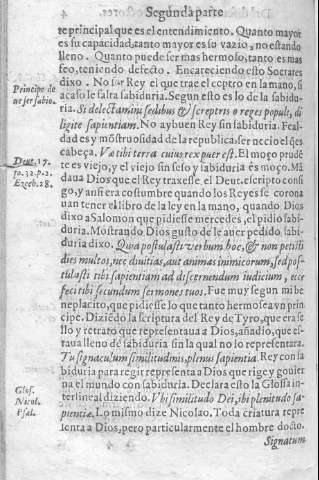 Segunda parte
te principal que es el entendimiento. Quanto mayor
es su capacidad, tanto mayor es su vazio, no estando
lleno. Quanto puede ser mas hermoso, tanto es mas
feo, teniendo defecto. Encareciendo esto Socrates
dixo. No ser Rey el que trae el ceptro en la mano, si
Principe de
acaso le falta sabiduria. Segun esto es lo de la sabidu-
ue ser sabio.
ria. Si delectamini sedibus & sceptris o reges populi, di
ligite sapientiam. No ay buen Rey sin sabiduria. Feal-
dad es y mõstruosidad de la republica ser necio el q̃ es
cabeça. Væ tibi terra cuius rex puer est. El moço prudẽ
Deut. 17.
te es viejo, y el viejo sin seso y sabiduria es moço. Mã
Ezech. 28.
daua Dios que el Rey traxesse el Deut. escripto consi
go, y ansi era costumbre quando los Reyes se corona
uan tener el libro de la ley en la mano, quando Dios
dixo a Salomon que pidiesse mercedes, el pidio sabi-
duria. Mostrando Dios gusto de le auer pedido sabi-
duria dixo. Quia postulasti verbum hoc, & non petisti
dies multos, nec diuitias, aut animas inimicorum, sed pos-
tulasti tibi sapientiam ad discernendum iudicium, ecce
feci tibi secundum sermones tuos. Fue muy segun mi be
neplacito, que pidiesse lo que tanto hermosea vn prin
cipe. Diziẽdo la scriptura del Rey de Tyro, que era se
llo y retrato que representaua a Dios, añadio, que es-
taua lleno de sabiduria sin la qual no lo representara.
Tu signaculum similitudinis, plenus sapientia. Rey con sa
biduria para regir representa a Dios que rige y gouier
na el mundo con sabiduria. Declara esto la Glossa in-
Glos.
terlineal diziendo. Vbi similitudo Dei, ibi plenitudo sa-
Nicol.
pientiæ. Lo mismo dize Nicolao. Toda criatura repre
senta a Dios, pero particularmente el hombre docto.
Signatum